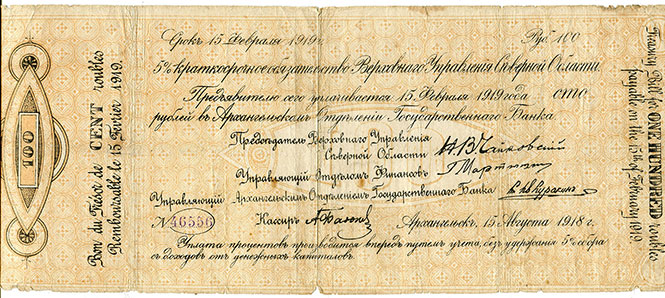 Срокъ 15 Февраля 1919 г. Руб. 100
5% краткосрочное обязательство Верховнаго Управленія Сѣверной Области.
Предъявителю сего уплачивается 15 Февраля 1919 года сто
рублей въ Архангельскомъ Отдѣленіи Государственнаго Банка
Предсѣдатель Верховнаго Управленія
Сѣверной Области Н.В. Чайковскій
Управляющій Отдѣломъ Финансовъ
Управляющій Архангельскимъ Отдѣленіемъ Государственнаго Банка
№ 46556 Кассиръ
Архангельскъ, 15 Августа 1918 г.
Уплата процентовъ производится впередъ путемъ учета, безъ удержанія 5% сбора
съ доходовъ отъ денежныхъ капиталовъ.
100
Bon du Trésor de CENT roubles
Remboursable le 15 Février 1919.
Treasury Bill for ONE HUNDRED roubles
payable on the 15th of February 1919.